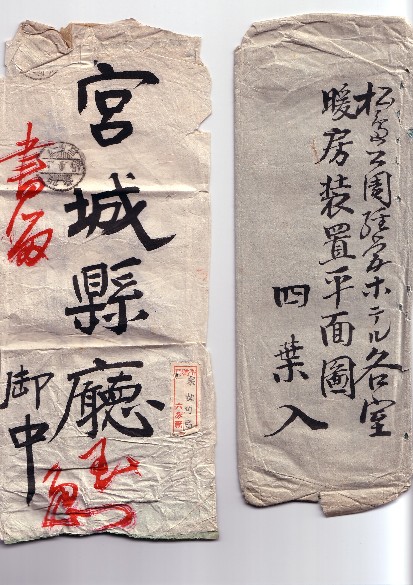 松島公園経営ホテル各室
暖房装置平面圖
四葉入
宮城縣廳
御中
書留
至急